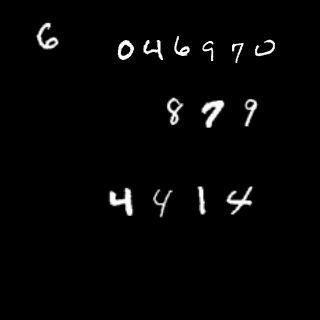 6 046970
879
4414